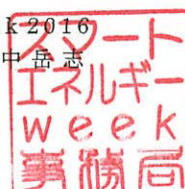 k 2016
中 岳 志
スマート
エネルギー
week
事務局